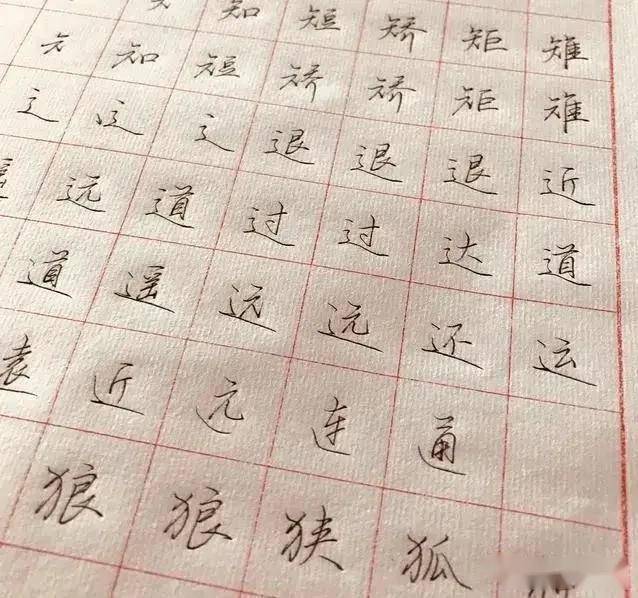 知 短 矫 矩 雉
知 短 矫 矫 矩 雉
辶 辶 辶 退 退 退 近
远 道 过 过 达 道
道 遥 远 远 还 运
近 远 连 通
狼 狼 狭 狐